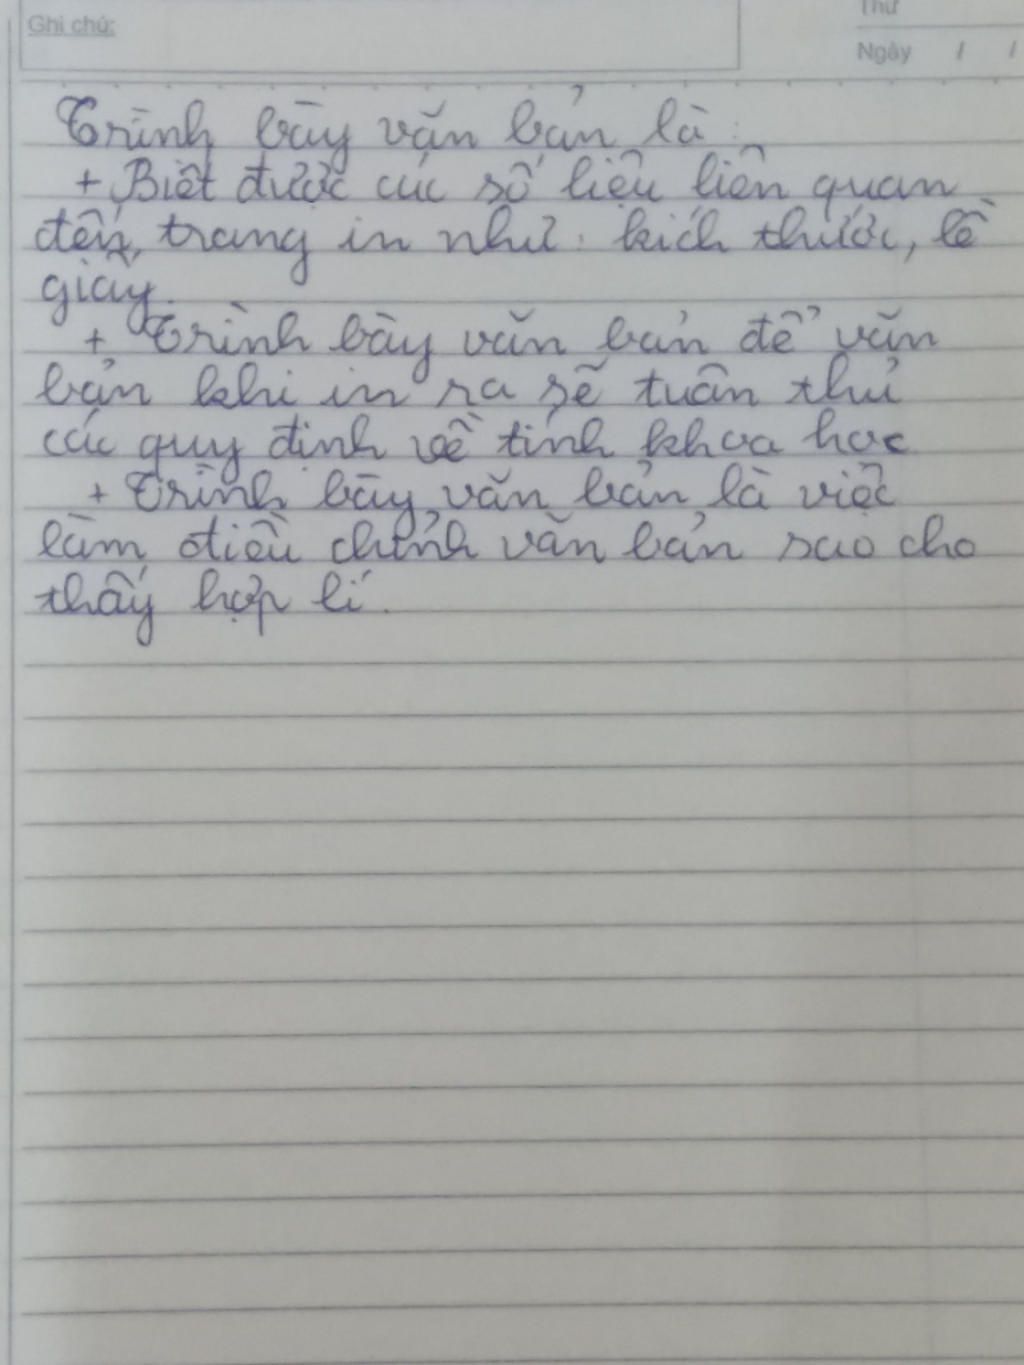 Ghi chú:
Thứ
Ngày / /
Trình bày văn bản là:
+ Biết được các số liệu liên quan
đến trang in như: kích thước, lề
giấy.
+ Trình bày văn bản để văn
bản khi in ra sẽ tuân thủ
các quy định về tính khoa học
+ Trình bày văn bản là việc
làm điều chỉnh văn bản sao cho
thấy hợp lí.